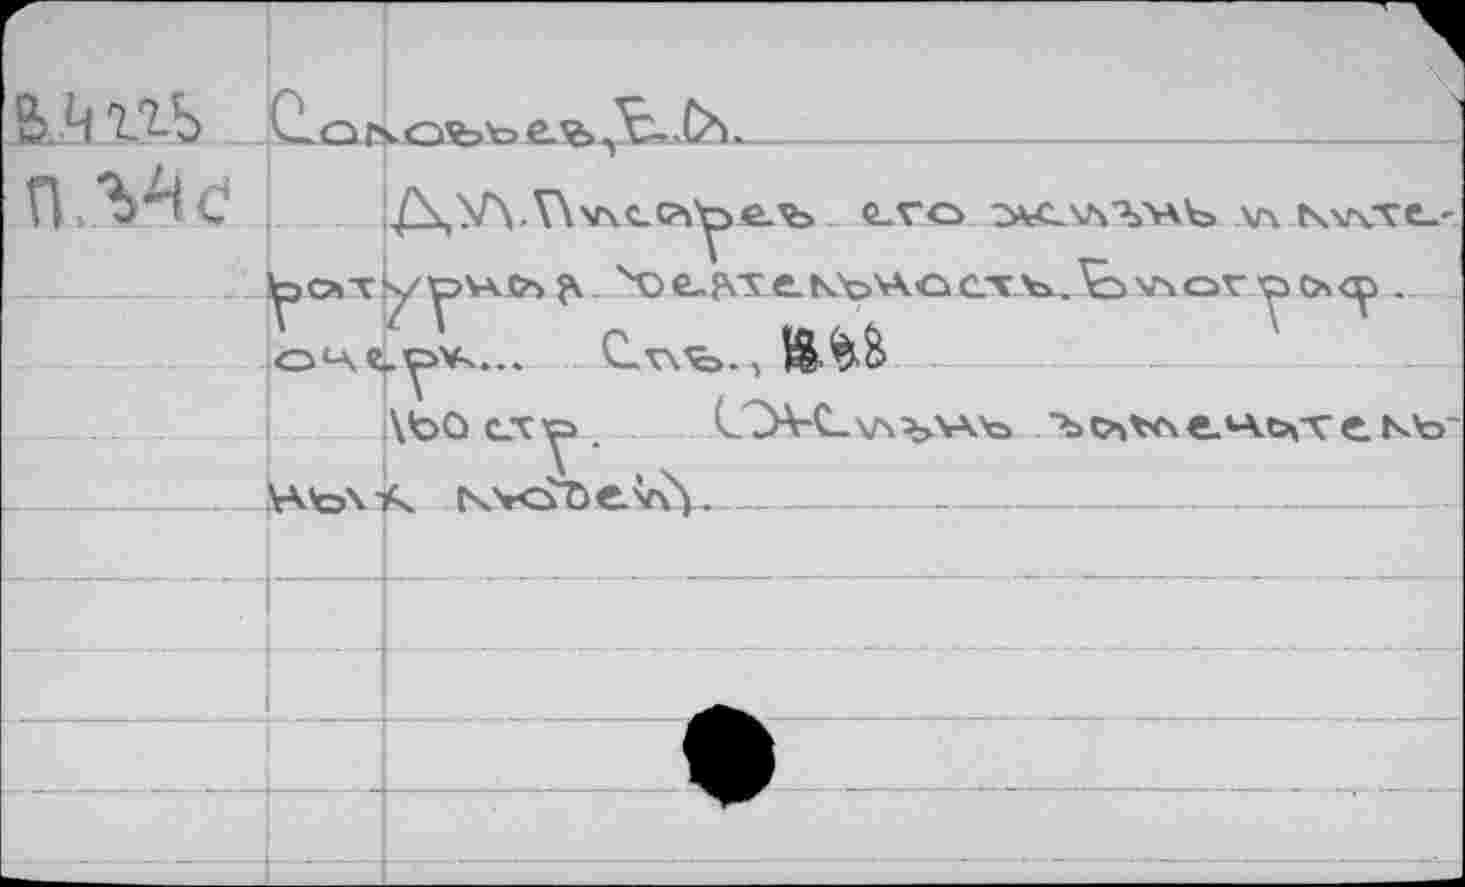 Соловьев, Е.А.
П.34с
Д.И. Писарев его жизнь и лите-
ратурная деятельность. Биограф.
очерк... Спб.,
160 стр. (Жизнь замечатель-
ных людей).